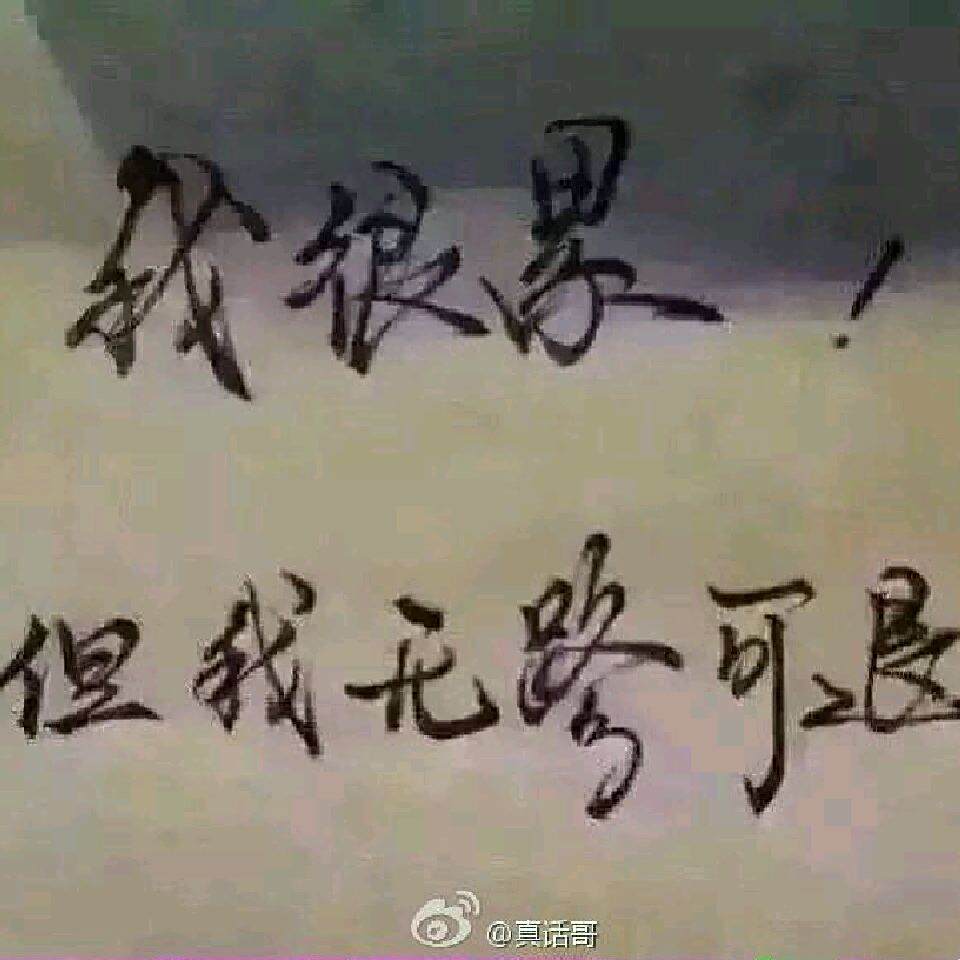 我很累！
但我无路可退
@真话哥